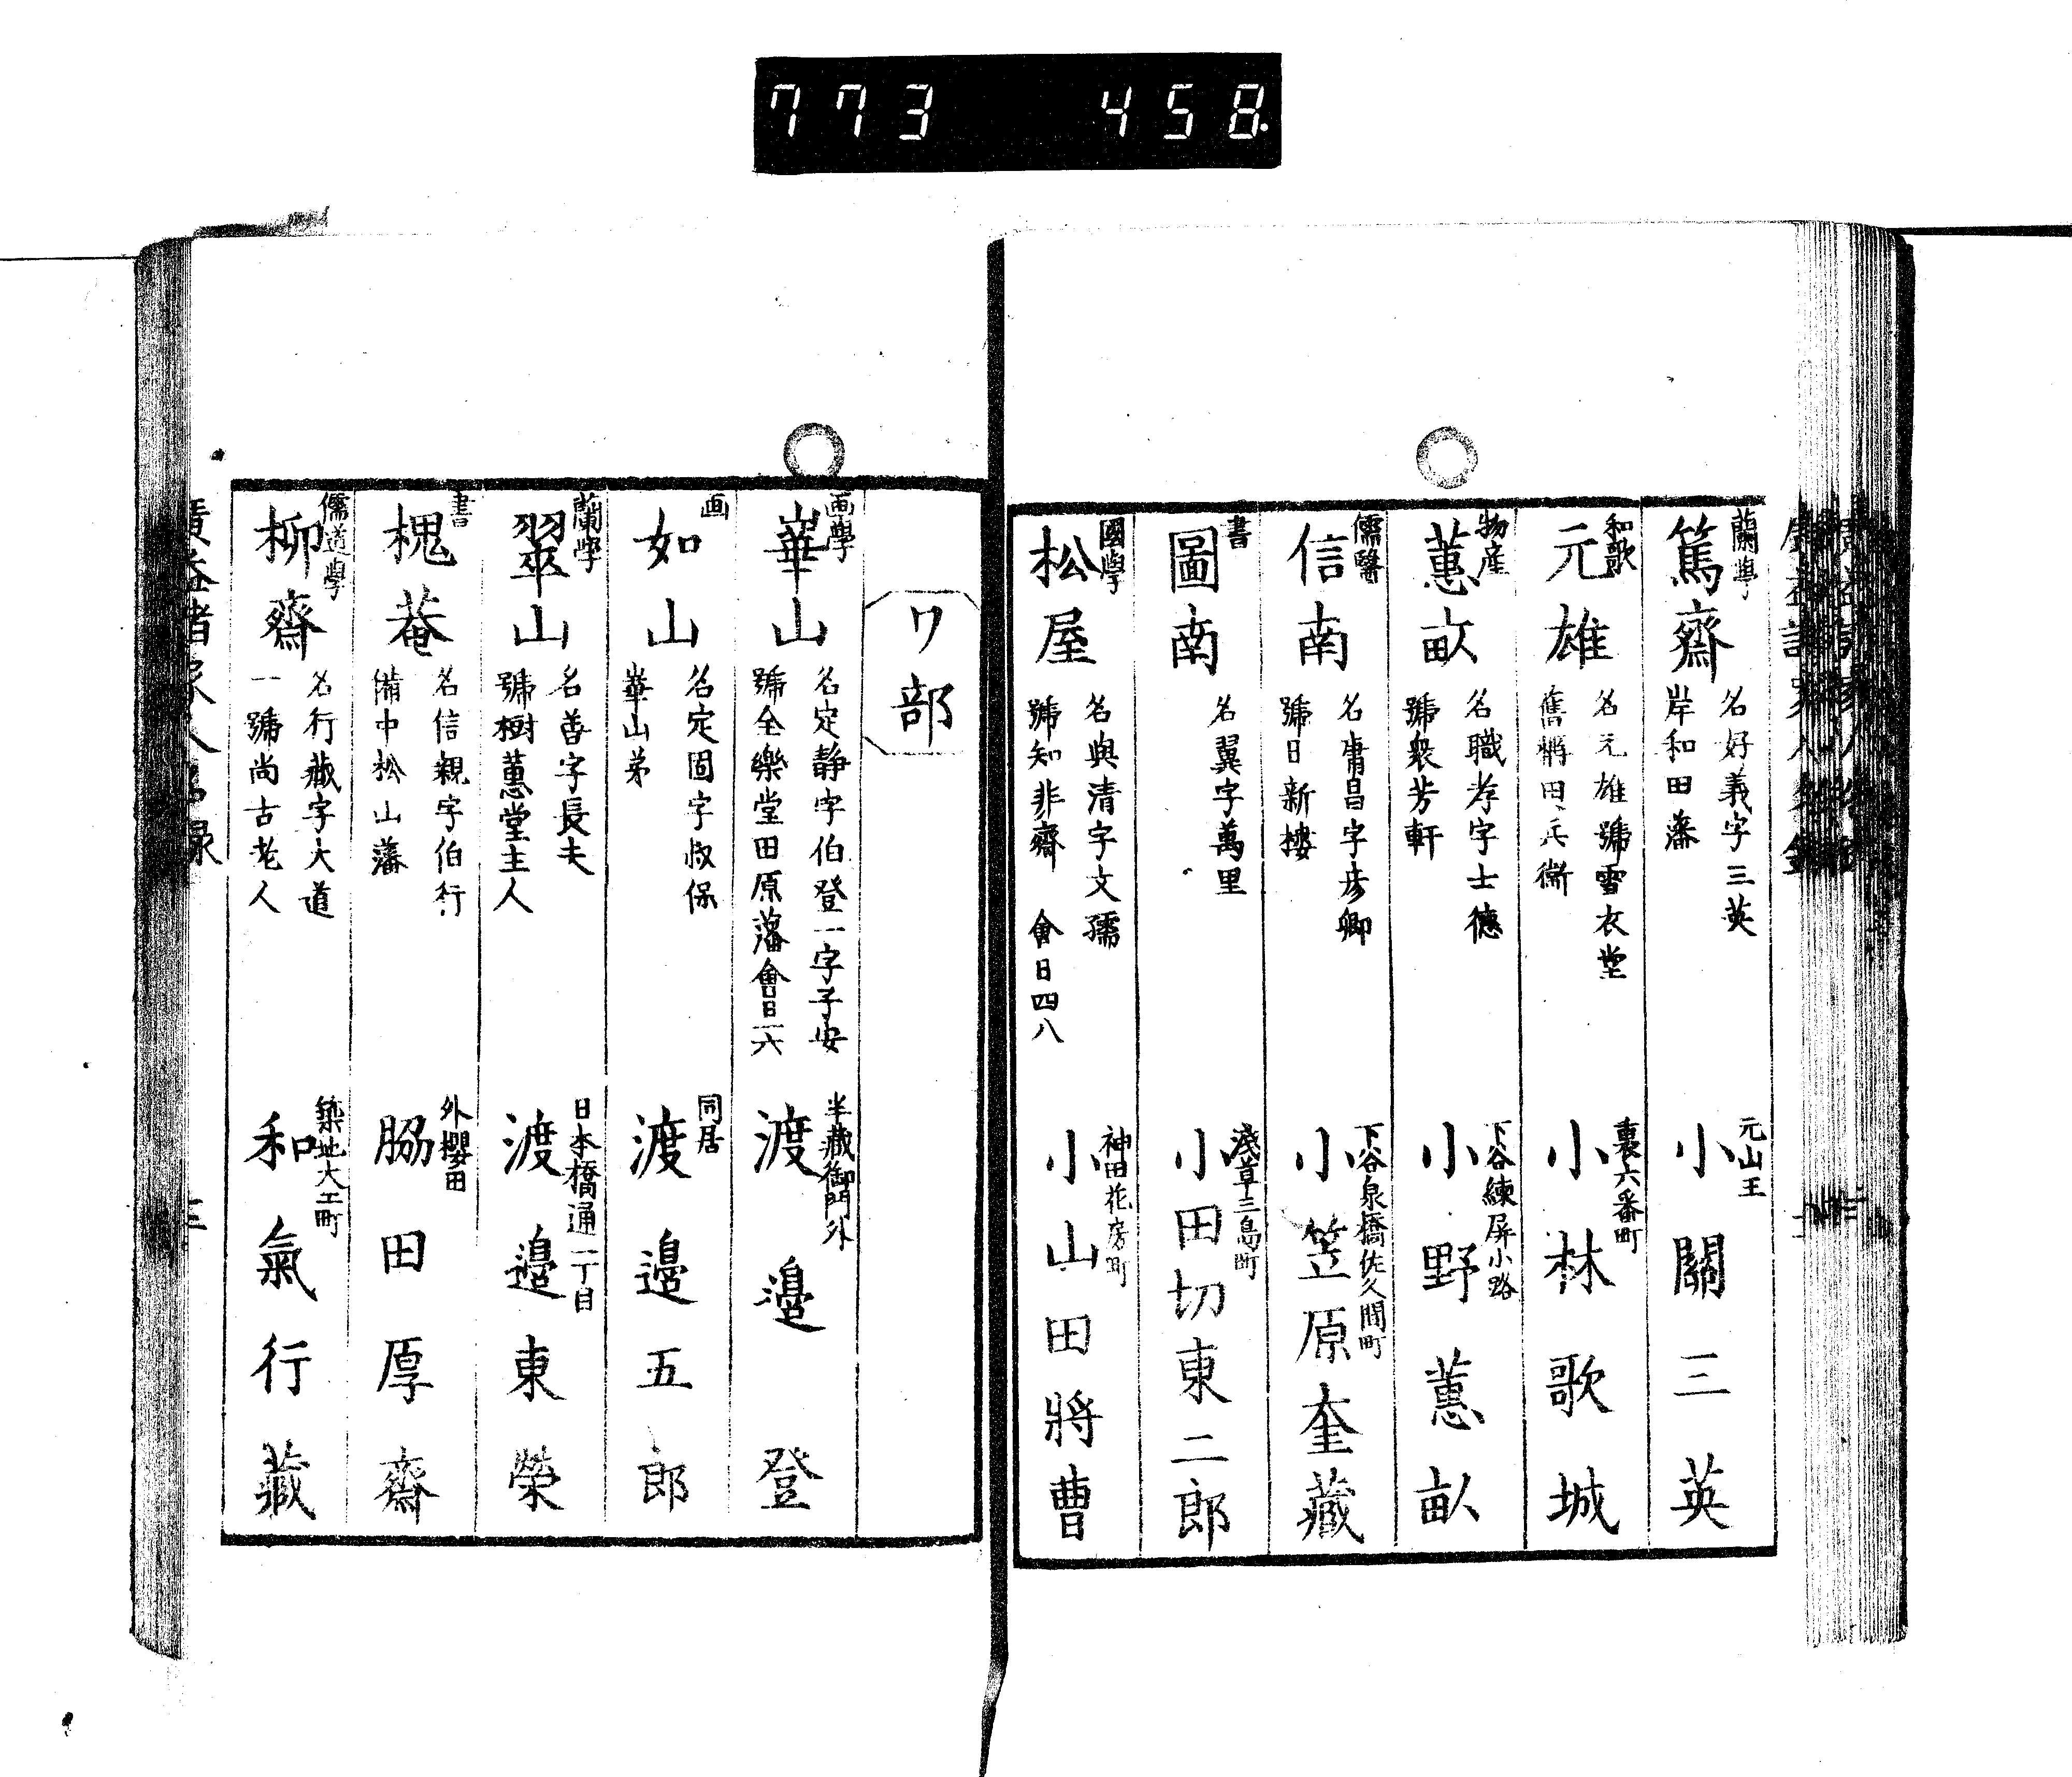 773 458.
蘭學
篤齋
名好義字三英
岸和田藩
元山王
小關三英
和歌
元雄
名元雄號雪衣堂
舊稱田兵衛
裏六番町
小林歌城
物産
蕙畝
名職孝字士德
號衆芳軒
下谷練屏小路
小野蕙畝
儒醫
信南
名庸昌字彦卿
號日新樓
下谷泉橋佐久間町
小笠原奎藏
書
圖南
名翼字萬里
淺草三島町
小田切東二郎
國學
松屋
名與清字文孺
號知非齋 會日四八
神田花房町
小山田將曹
ワ部
画學
崋山
名定静字伯登一字子安
號全樂堂田原藩會日一六
半藏御門外
渡邉登
画
如山
名定固字叔保
崋山弟
同居
渡邉五郎
蘭學
翠山
名善字長夫
號樹蕙堂主人
日本橋通一丁目
渡邉東榮
書
槐菴
名信親字伯行
備中松山藩
外櫻田
脇田厚齋
儒道學
柳齋
名行藏字大道
一號尚古老人
築地大工町
和氣行藏